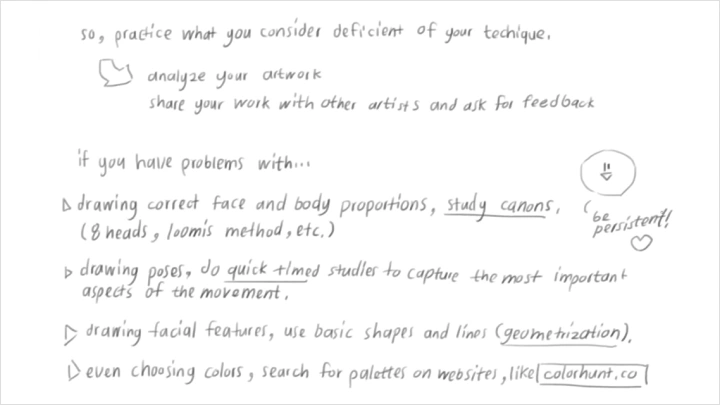 so, practice what you consider deficient of your techique.
analyze your artwork
share your work with other artists and ask for feedback
if you have problems with...
drawing correct face and body proportions, study canons.
(8 heads, loomis method, etc.)
be
persistent!
drawing poses, do quick timed studies to capture the most important
aspects of the movement.
drawing facial features, use basic shapes and lines (geometrization).
even choosing colors, search for palettes on websites, like colorhunt.co